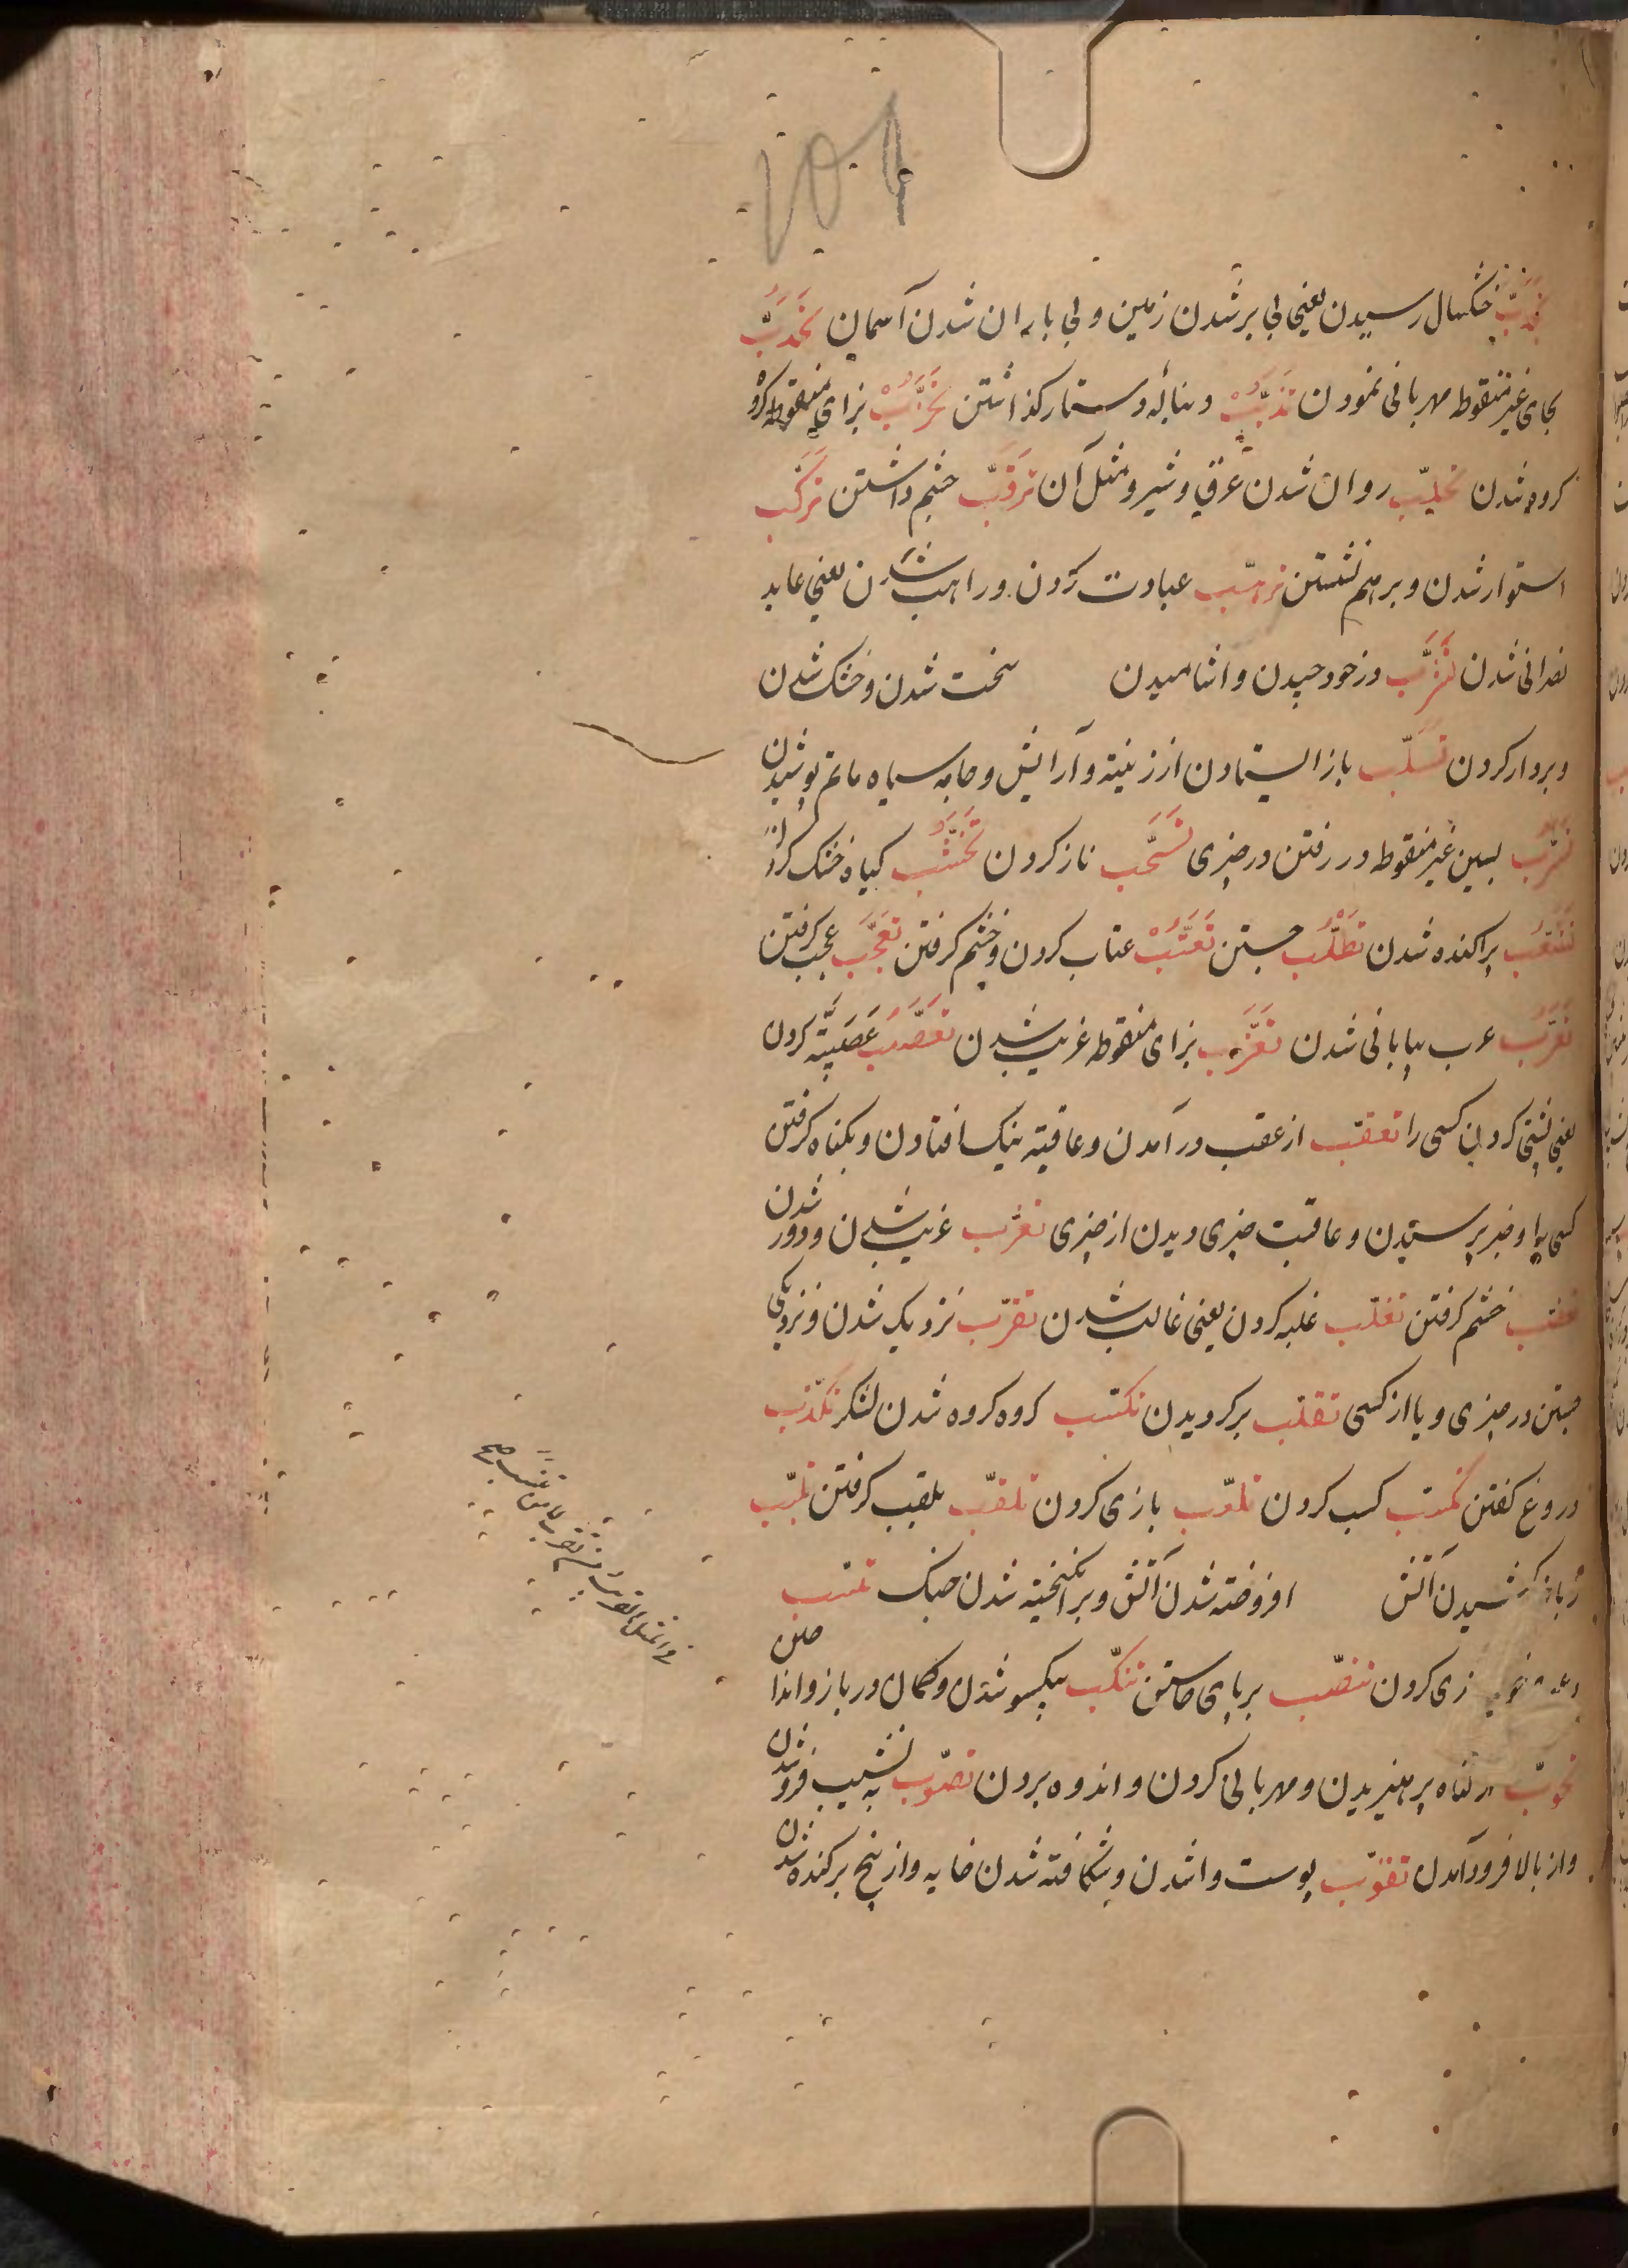 101
تجدّب خشکسال رسیدن یعنی بی بر شدن زمین و بی باران شدن آسمان تحدّب
بحای غیر منقوطه مهربانی نمودن تذنّب دنباله دستار گذاشتن تحزّب بزای منقوطه گروه
گروه شدن تحلّب روان شدن عرق و شیر و مثل آن ترقّب چشم داشتن ترکّب
استوار شدن و بر هم نشستن ترهّب عبادت کردن و راهب شدن یعنی عابد
نصرانی شدن تشرّب در خود چیدن و اشامیدن سخت شدن و خشک شدن
و بردار کردن تسلّب باز ایستادن از زینة و آرایش و جامه سیاه ماتم پوشیدن
تسرّب بسین غیر منقوطه در رفتن در چیزی تسحّب ناز کردن تخشّب گیاه خشک
تشعّب پراکنده شدن تطلّب جستن تعتّب عتاب کردن و خشم گرفتن تعجّب عجب گرفتن
تعرّب عرب بیابانی شدن تعزّب بزای منقوطه غریب شدن تعصّب عصبیّة کردن
یعنی پشتی کردن کسی را تعقّب از عقب در آمدن و عاقبة نیک افتادن و بگناه گرفتن
کسی را و خبر پرسیدن و عاقبت چیزی دیدن از چیزی تغرّب غریب شدن و دور شدن
تغضّب خشم گرفتن تغلّب غلبه کردن یعنی غالب شدن تقرّب نزدیک شدن و نزدیکی
جستن در چیزی و یا از کسی تقلّب برگردیدن تکتّب گروه گروه شدن لشکر تکذّب
دروغ گفتن تکسّب کسب کردن تلعّب بازی کردن تلقّب بلقب گرفتن تلهّب
زبانه کشیدن آتش افروخته شدن آتش و برانگیخته شدن جنگ
کردن تنصّب بر پای خاستن تنکّب بیکسو شدن و کمان در بازو انداختن
تحوّب از گناه پرهیزیدن و مهربانی کردن و اندوه بردن تصوّب به نشیب فرو شدن
و از بالا فرود آمدن تقوّب پوست واشدن و شکافته شدن خایه و از بیخ برکنده شدن